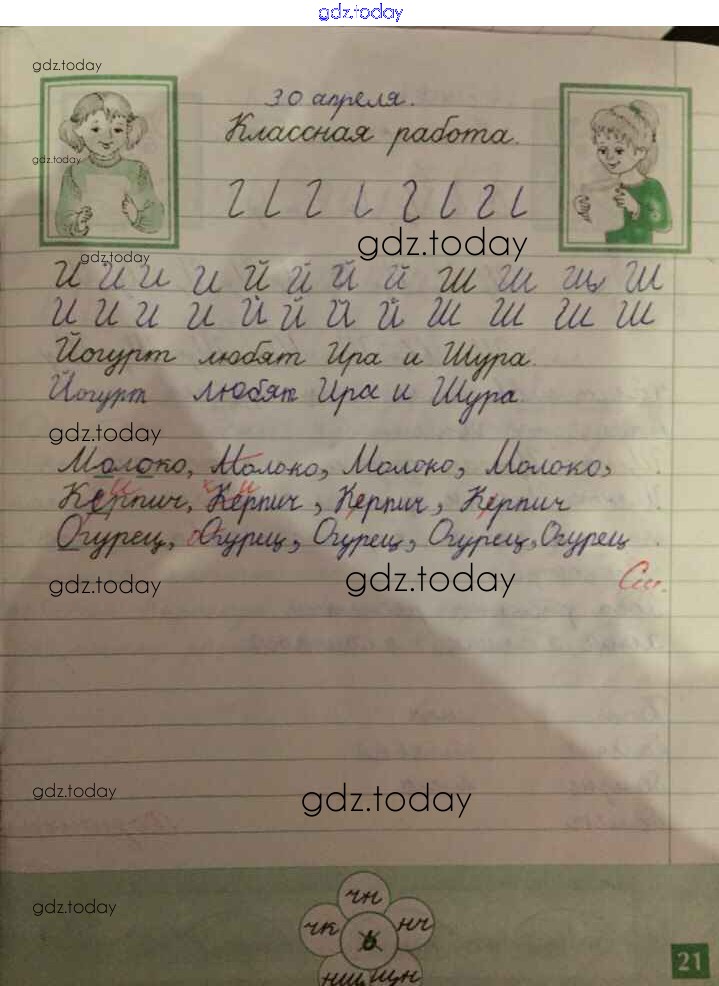 gdz.today
gdz.today
30 апреля.
Классная работа.
gdz.today
gdz.today
gdz.today
И И И И Й Й Й Й Ш Ш Щ Ш
И И И И Й Й Й Й Ш Ш Ш Ш
Йогурт любят Ира и Шура.
Йогурт любят Ира и Шура.
gdz.today
Молоко, Молоко, Молоко, Молоко,
Керпич, Керпич, Керпич, Керпич
Огурец, Огуриц, Огурец, Огурец, Огурец
gdz.today
gdz.today
См.
gdz.today
gdz.today
gdz.today
чн
чк
нч
ь
нщ
щн
21